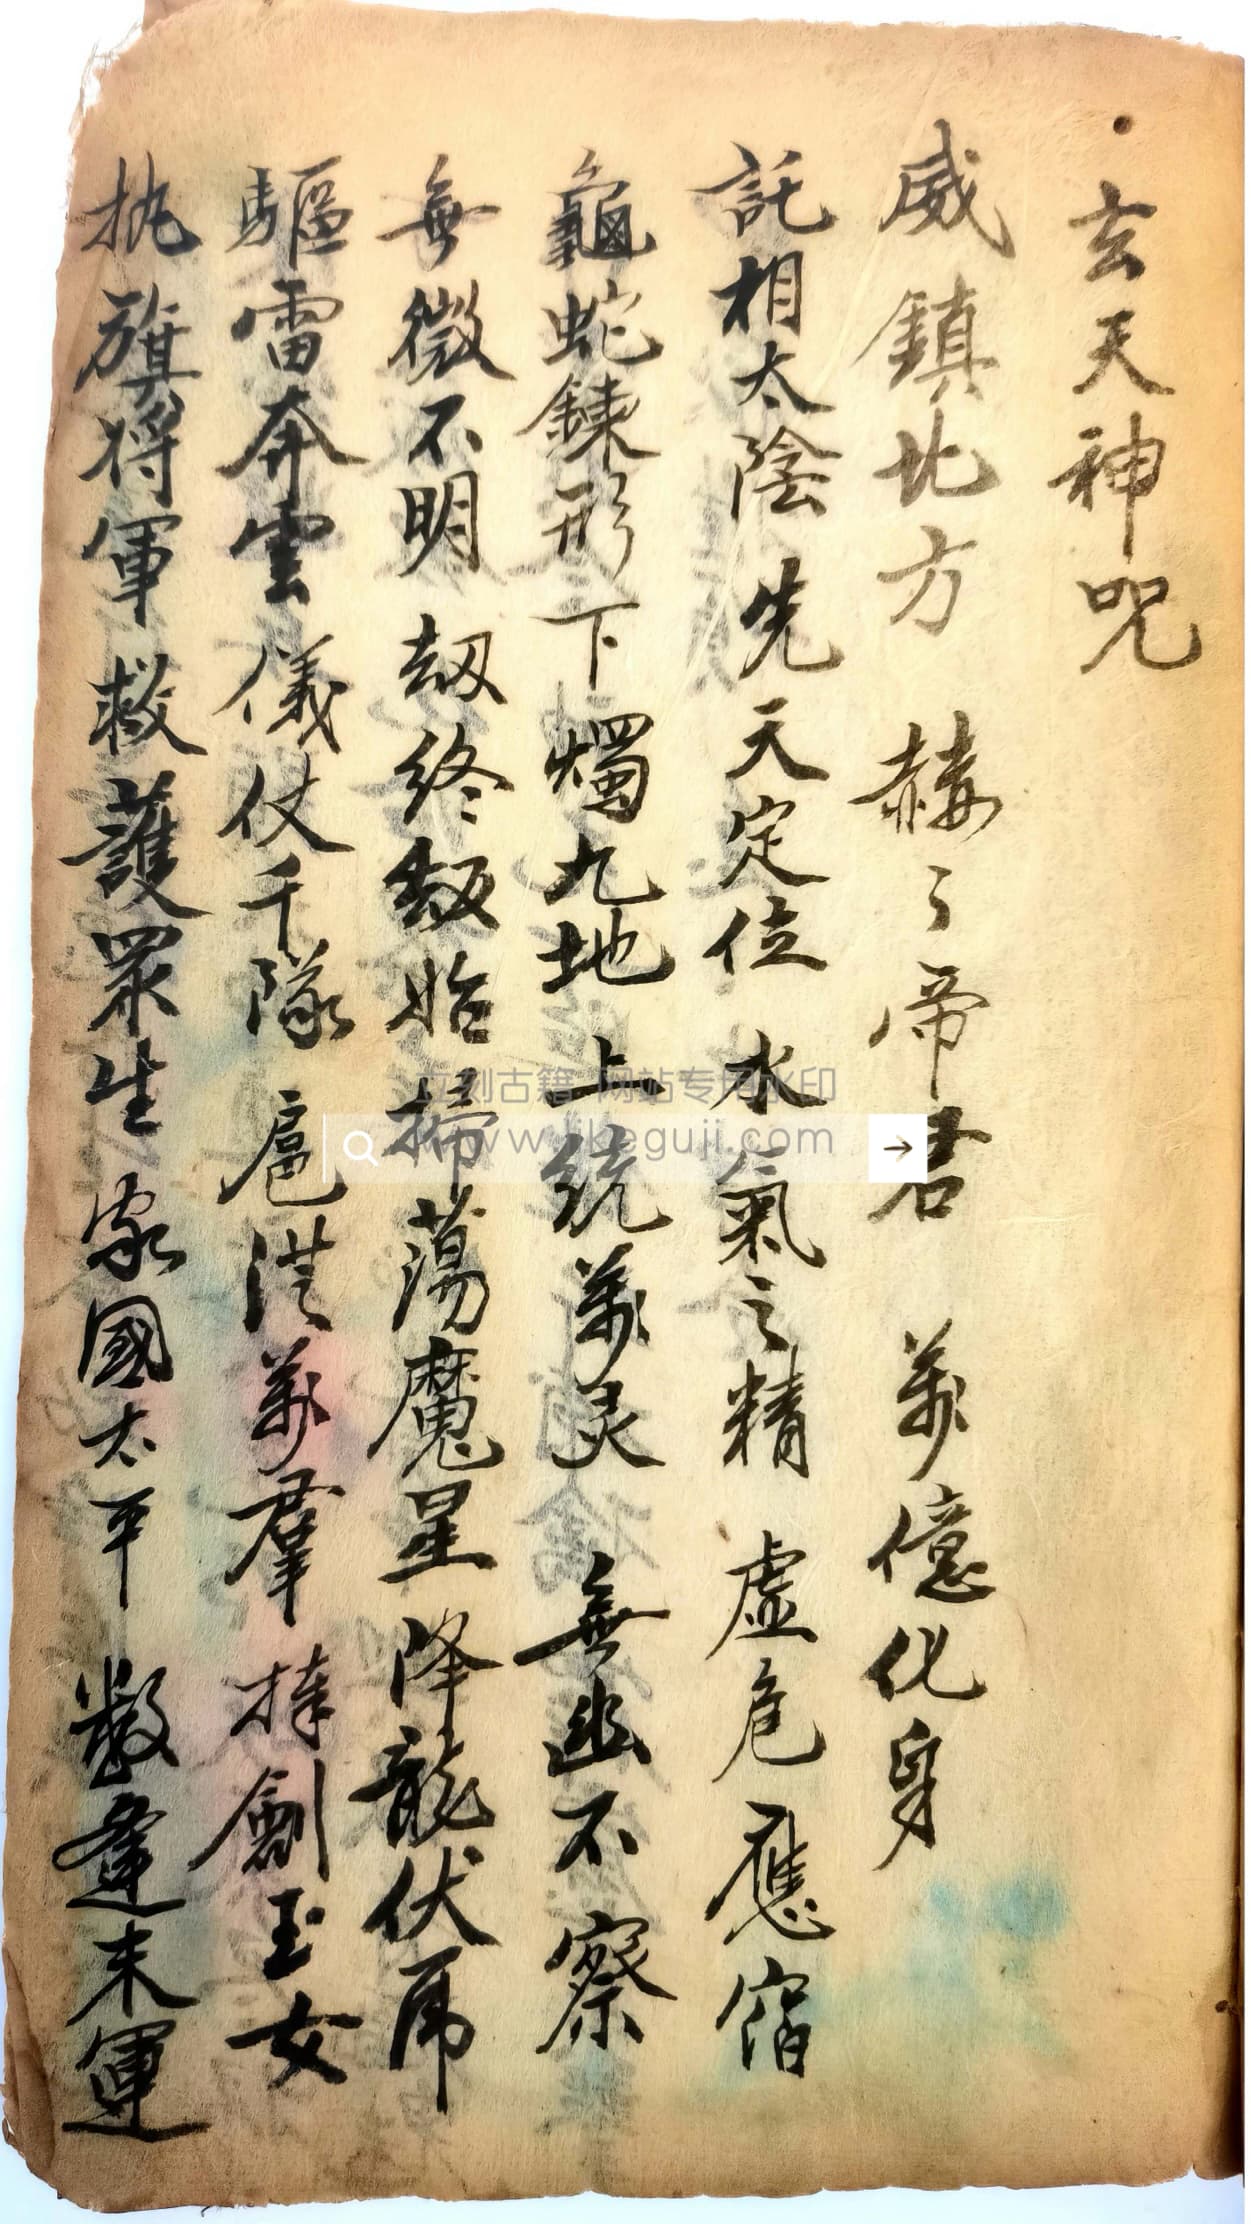 玄天神咒
威鎮北方 赫々帝君 萬億化身
託相太陰 先天定位 水氣之精 虛危應宿
龜蛇鍊形 下燭九地 上統萬灵 無幽不察
無微不明 劫終劫始 掃蕩魔星 降龍伏虎
驅雷奔雲 儀仗千隊 扈從萬羣 捧劍玉女
执旗将軍 救護眾生 家國太平 數逢末運
立刻古籍 网站专用水印
www.likeguji.com